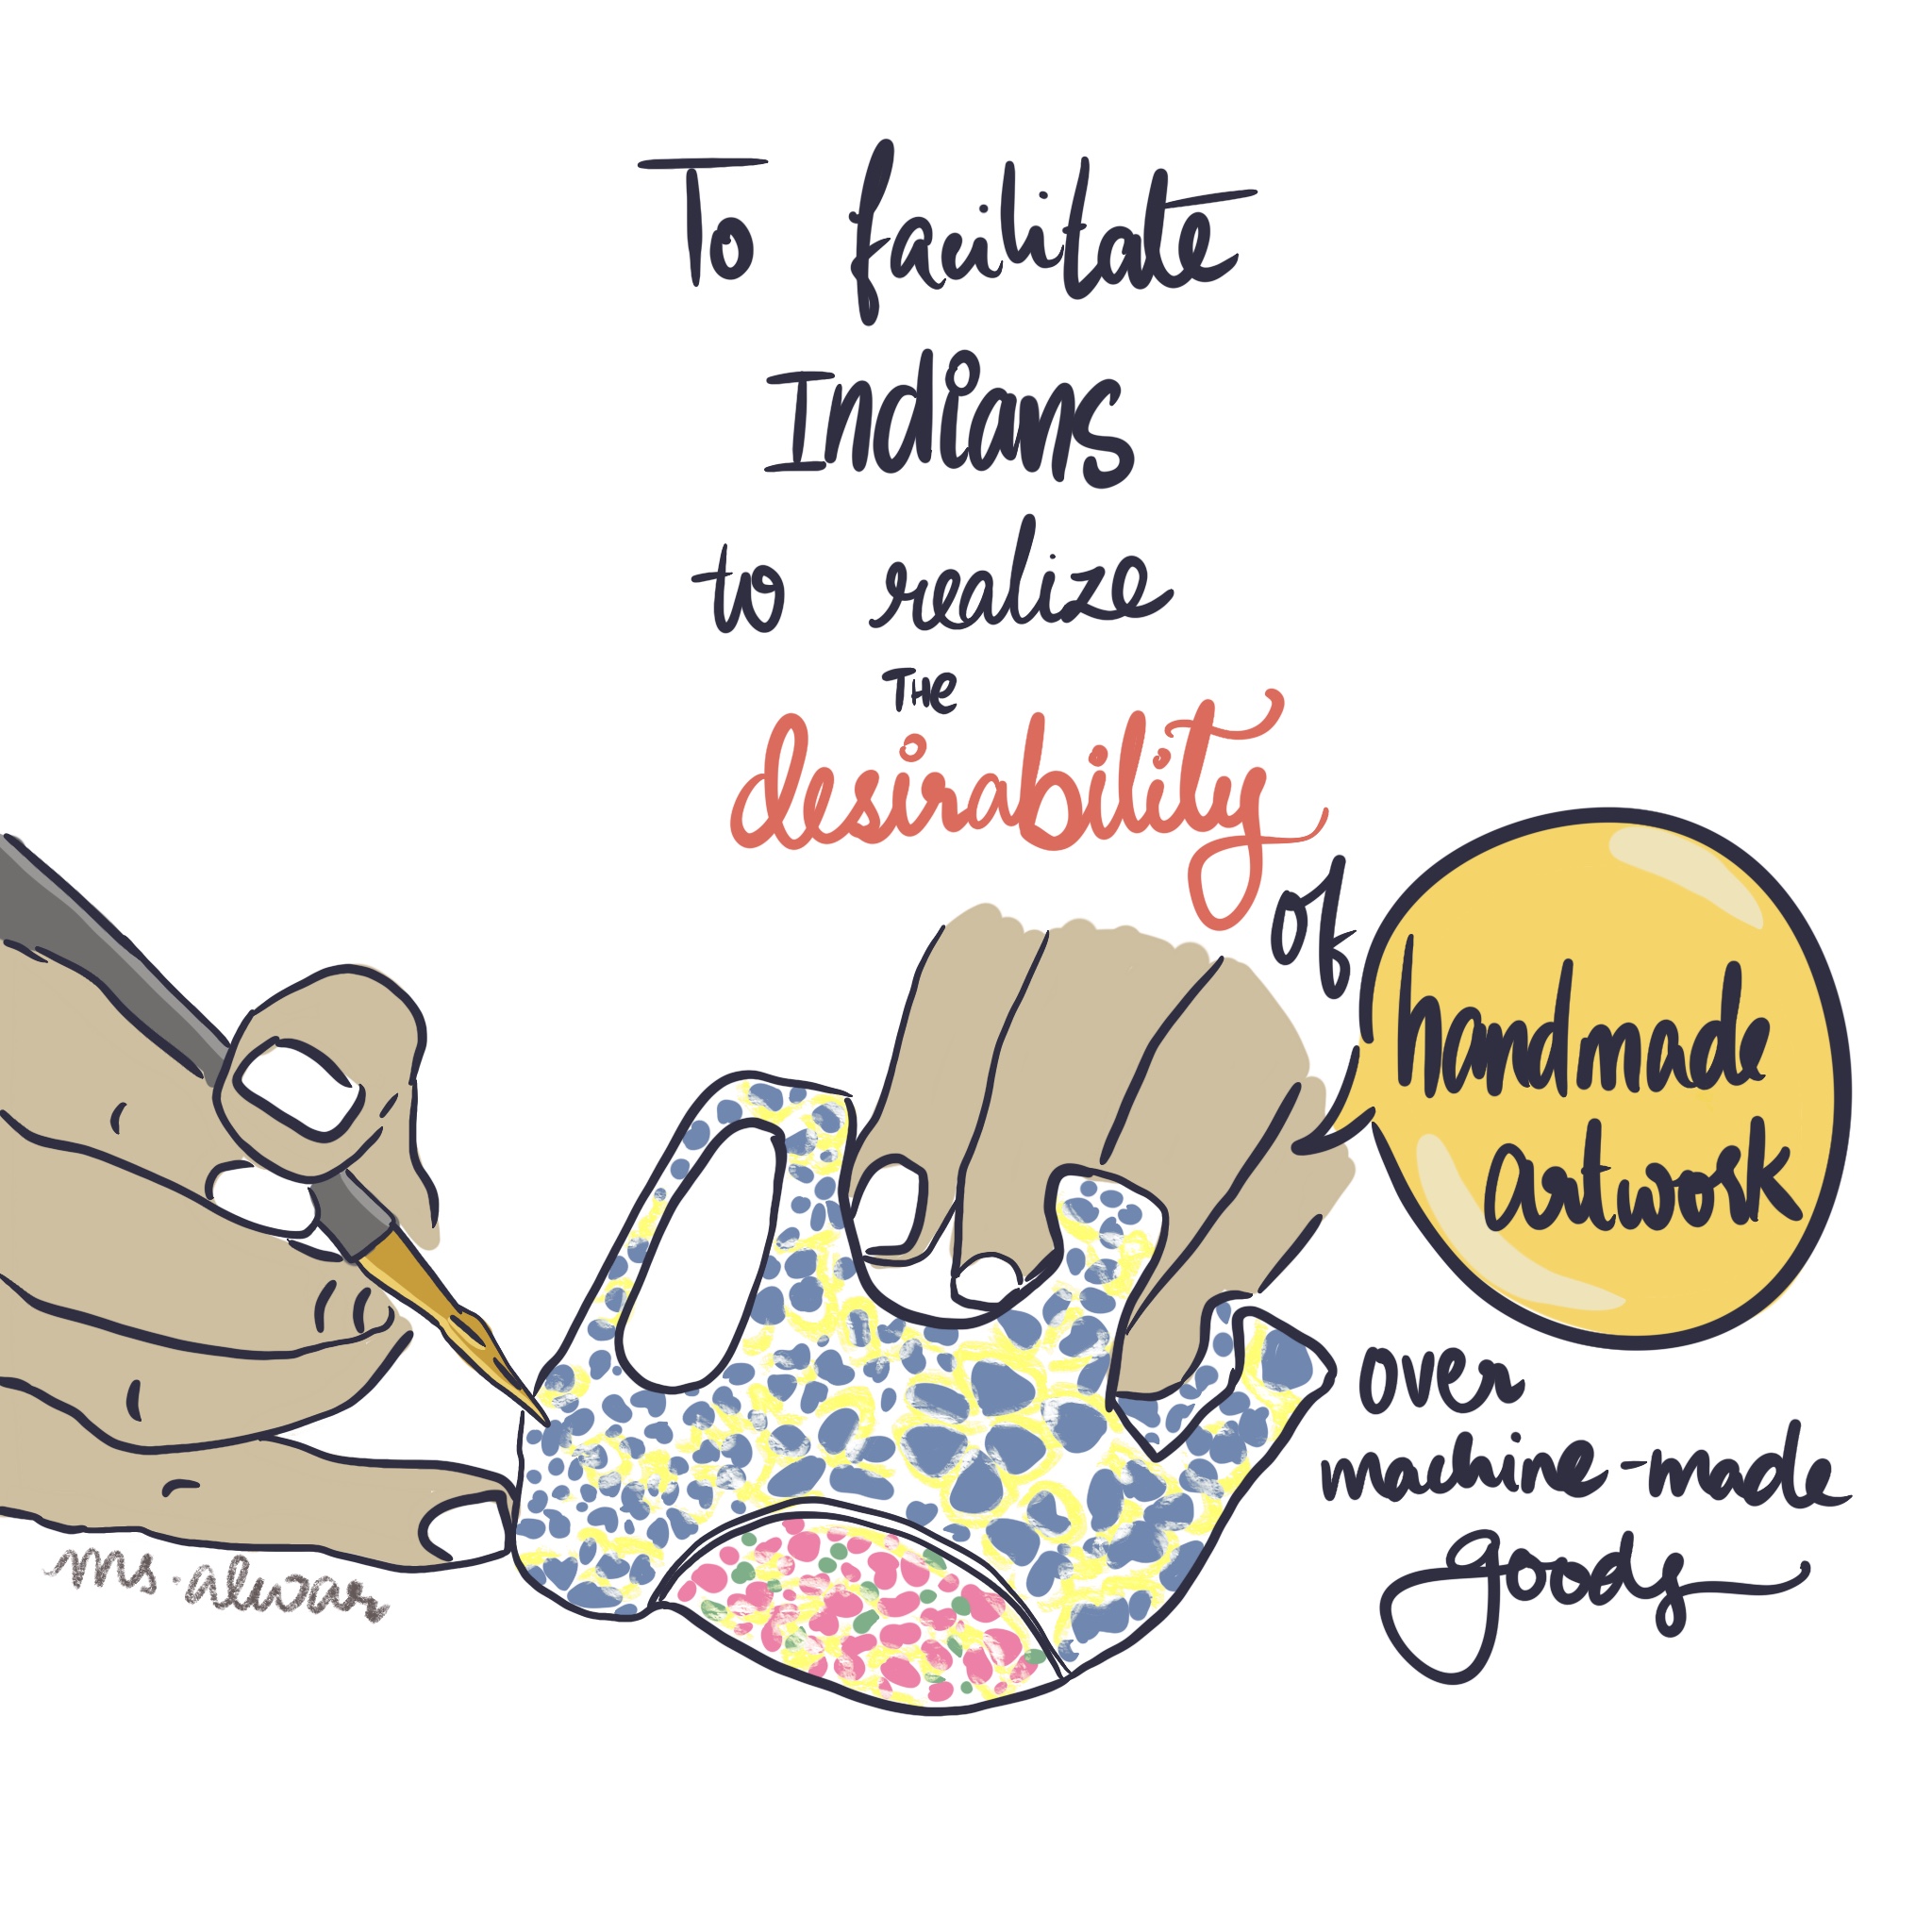 To facilitate
Indians
to realize
The
desirability
of
handmade
artwork
over
machine-made
goods
ms.alwar